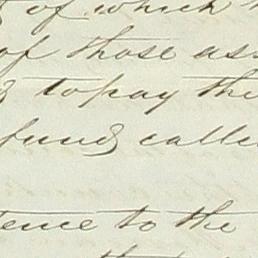 of which
of those ass
to pay the
fund calle
tence to the